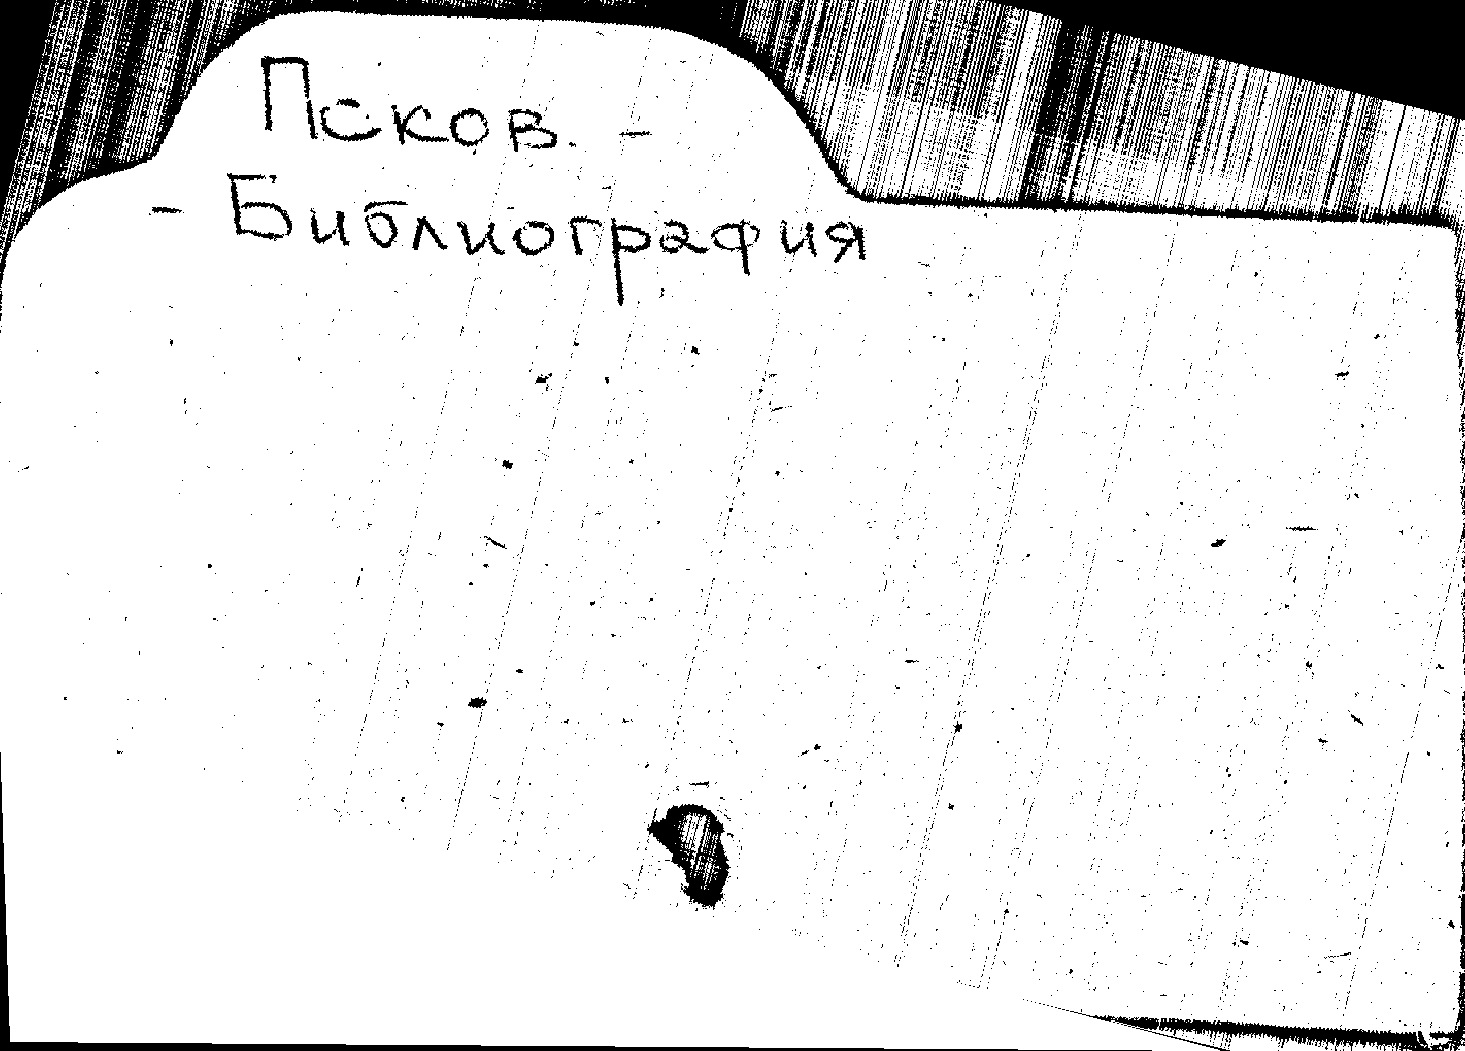 Псков. -
- Библиография